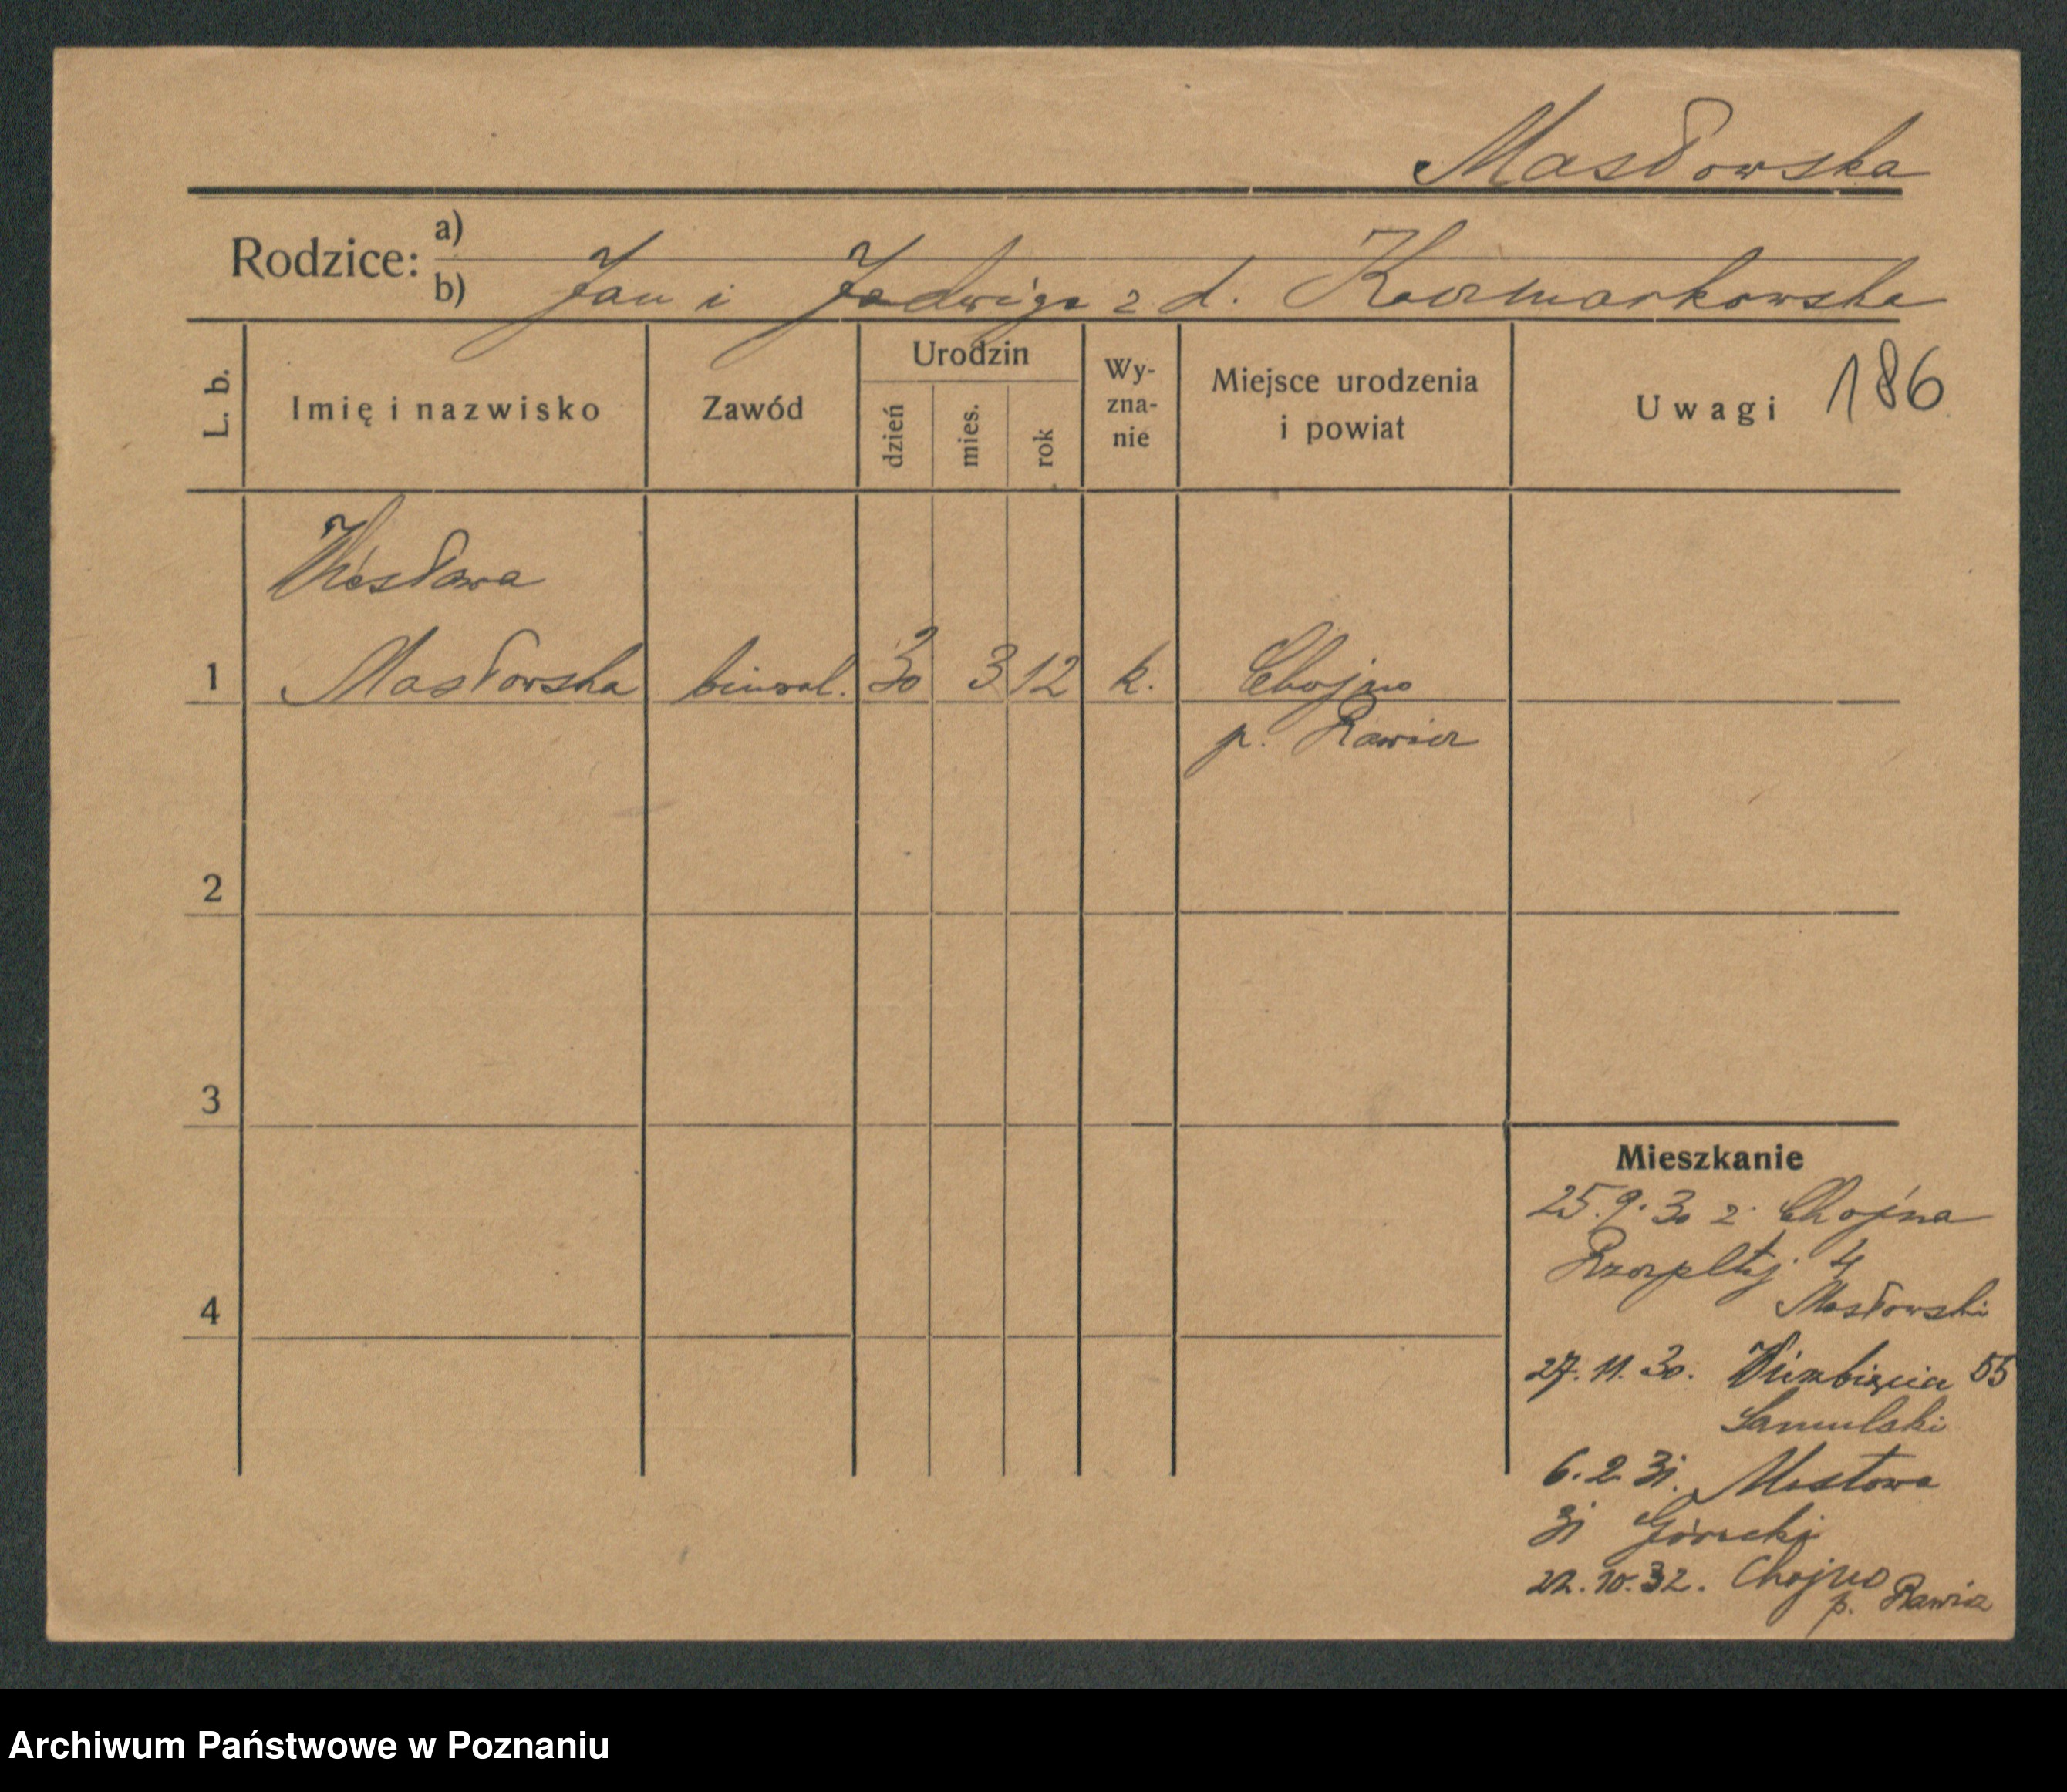 Masłowska
Rodzice: a)
b) Jan i Jadwiga z d. Kaczmarkowska
L. b. Imię i nazwisko Zawód Urodzin dzień mies. rok Wy-zna-nie Miejsce urodzenia i powiat Uwagi 186
Wiesława
1 Masłowska biural. 30 3 12 k. Chojno
p. Rawicz
2
3
4
Mieszkanie
25.9.30 z Chojna
Rzczpltej 4
Masłowski
27.11.30. Wierzbięcice 55
Samulski
6.2.31. Mostowa
31 Górecki
22.10.32. Chojno
p. Rawicz
Archiwum Państwowe w Poznaniu